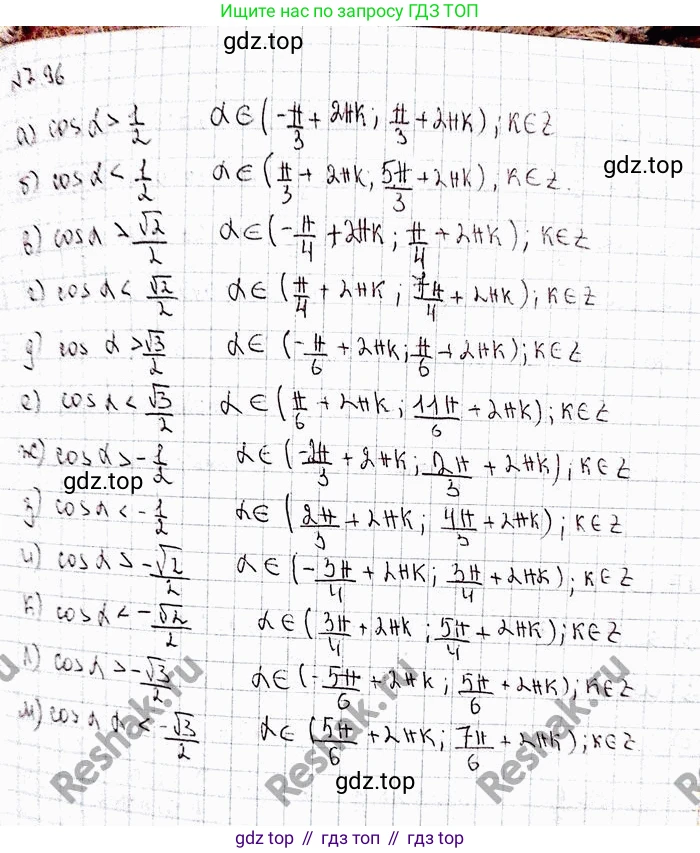 Ищите нас по запросу ГДЗ ТОП
gdz.top
№7.96
а) cos α > 1/2   α ∈ (-π/3 + 2πк; π/3 + 2πк); к∈Z
gdz.top
б) cos α < 1/2   α ∈ (π/3 + 2πк, 5π/3 + 2πк), к∈Z.
в) cos α > √2/2   α ∈ (-π/4 + 2πк; π/4 + 2πк); к∈Z
г) cos α < √2/2   α ∈ (π/4 + 2πк; 7π/4 + 2πк); к∈Z
д) cos α > √3/2   α ∈ (-π/6 + 2πк; π/6 + 2πк); к∈Z
е) cos α < √3/2   α ∈ (π/6 + 2πк; 11π/6 + 2πк); к∈Z
ж) cos α > -1/2   α ∈ (-2π/3 + 2πк; 2π/3 + 2πк), к∈Z
gdz.top
з) cos α < -1/2   α ∈ (2π/3 + 2πк; 4π/3 + 2πк); к∈Z
и) cos α > -√2/2   α ∈ (-3π/4 + 2πк; 3π/4 + 2πк); к∈Z
к) cos α < -√2/2   α ∈ (3π/4 + 2πк; 5π/4 + 2πк); к∈Z
л) cos α > -√3/2   α ∈ (-5π/6 + 2πк; 5π/6 + 2πк); к∈Z
м) cos α α < -√3/2   α ∈ (5π/6 + 2πк; 7π/6 + 2πк); к∈Z
Reshak.ru
Reshak.ru
Reshak.ru
gdz.top
gdz.top // гдз.топ // gdz.top